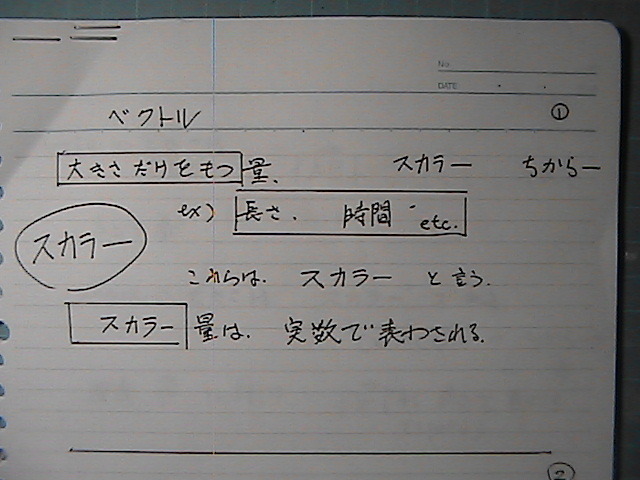 No.
DATE
ベクトル ①
大きさだけをもつ量、 スカラー ちからー
ex) 長さ、 時間 etc.
スカラー
これらは、スカラー と言う。
スカラー 量は、実数で表わされる。
②